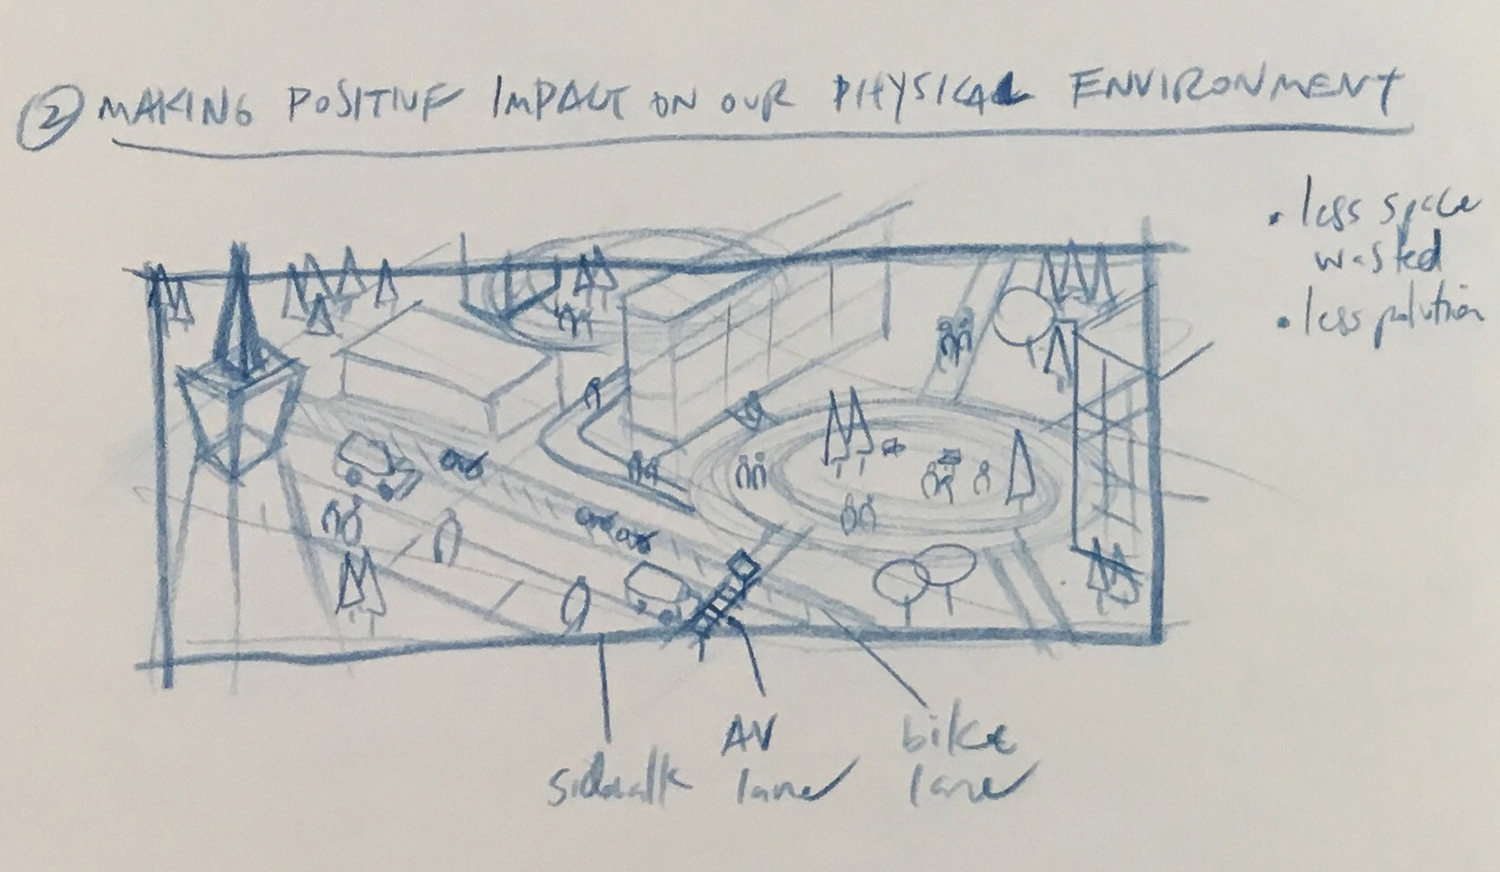 ② MAKING POSITIVE IMPACT ON OUR PHYSICAL ENVIRONMENT
• less space
wasted
• less polution
sidwalk
AV
lane
bike
lane